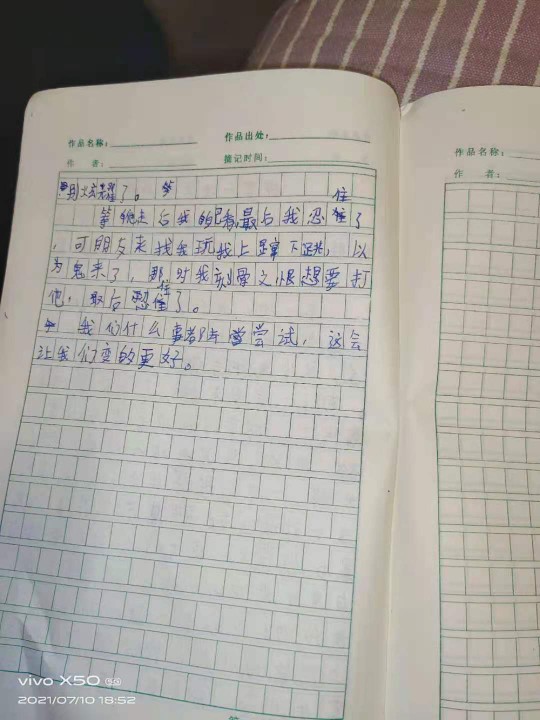 作品名称:
作品出处:
作 者:
摘记时间:
作品名称:
作 者:
别炫耀了。
住
等他走后我的忍着,最后我忍住了
,可朋友来找我玩我上蹿下跳,以
为鬼来了,那 对我 恨想要打
住
他,最后忍住了。
我们什么事都 尝试,这会
让我们变的更好。
vivo X50 5G
2021/07/10 18:52